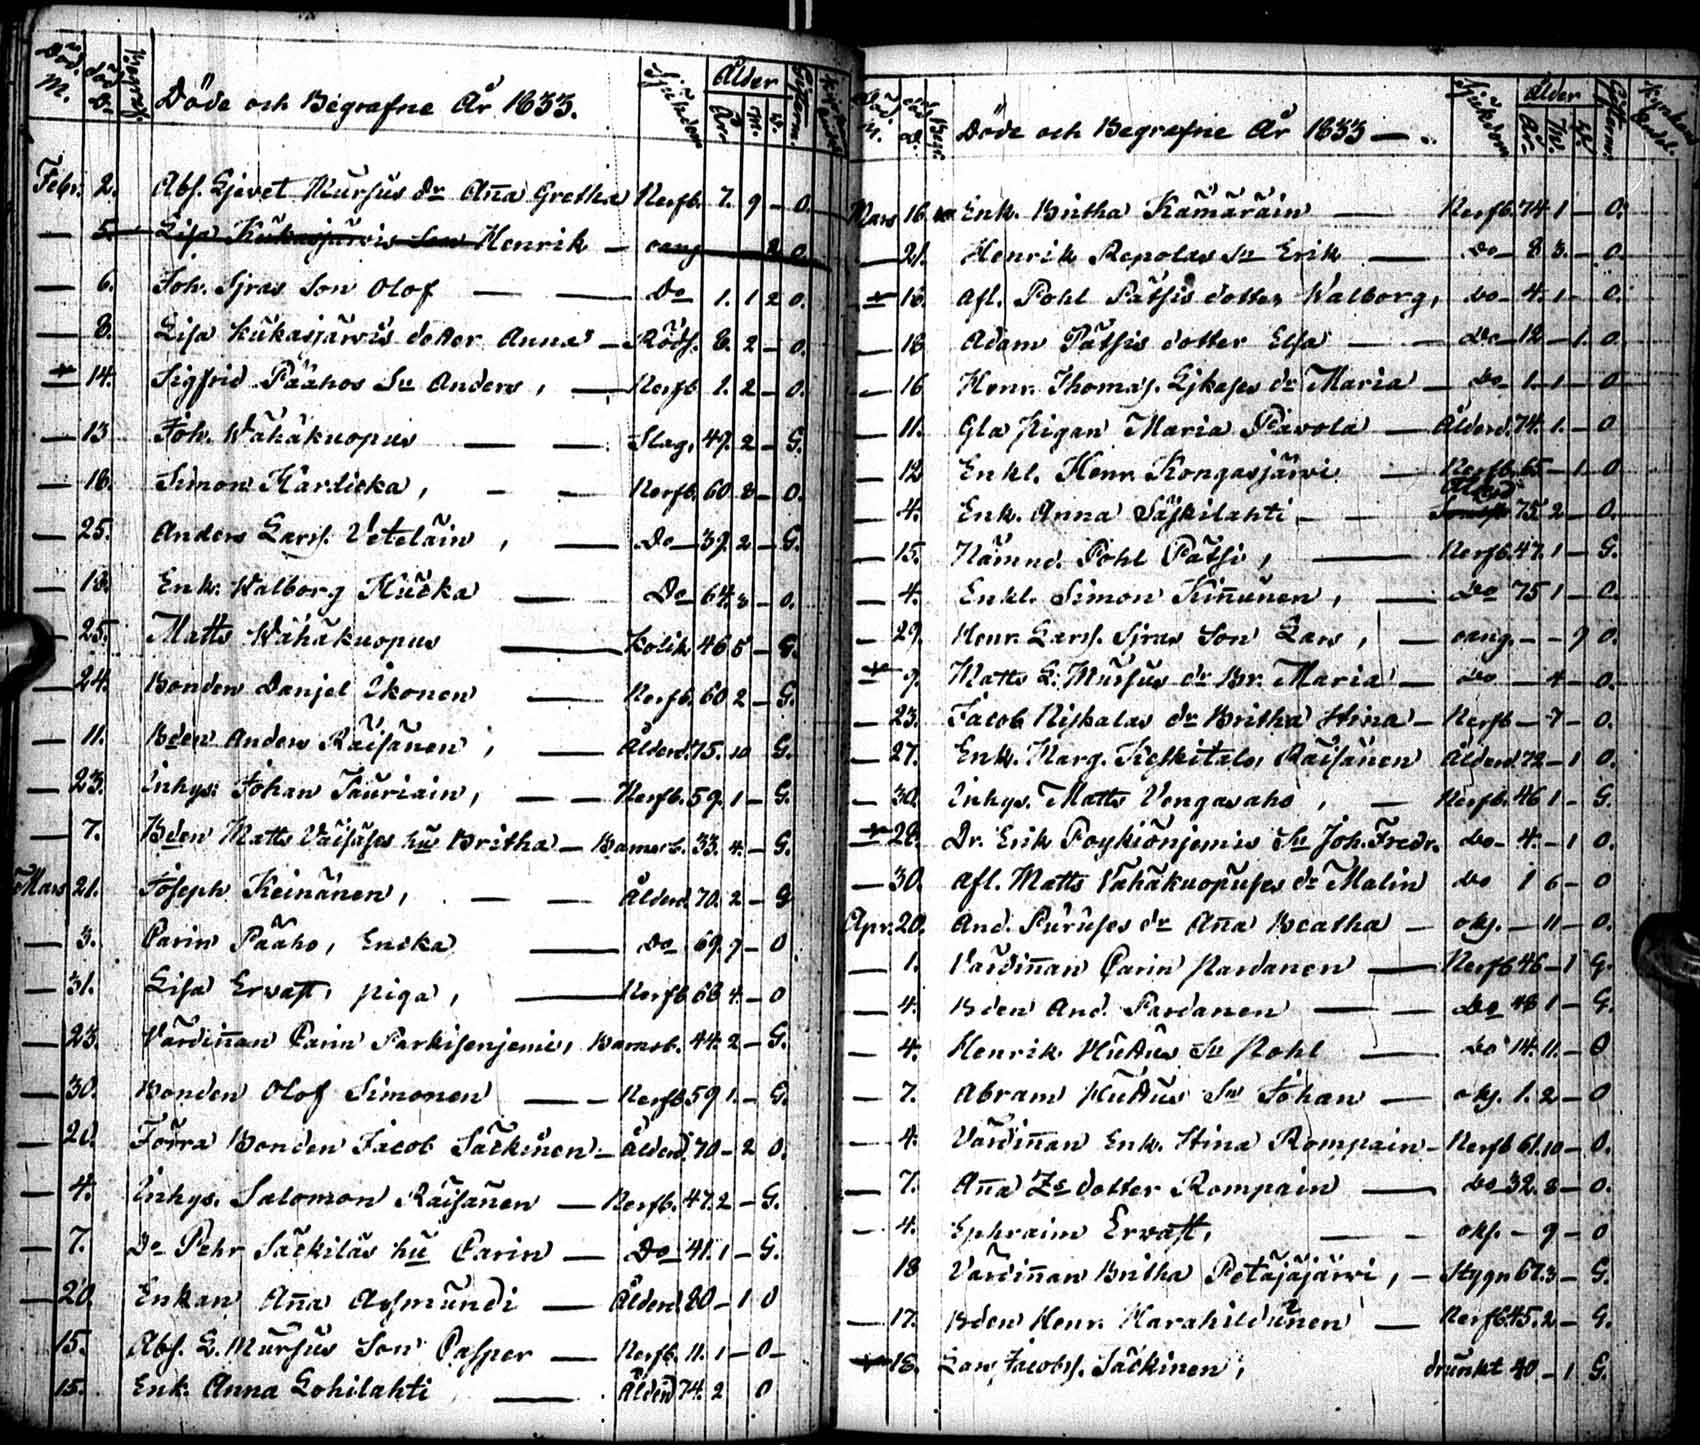 Död. M.
död D.
Döde och Begrafne År 1833.
Sjukdom
Ålder
År
M.
D.
Febr. 2. Abs. Gjevet Mursus dr Aña Gretha Nerfb. 7. 9 – O.
— 5. Lisa Kukasjärvis Son Henrik – oang 2 O.
— 6. Joh. Sjras Son Olof — — Do 1. 1 2 O.
— 8. Lisa Kukasjärvis dotter Anna – Röds. 8. 2 – O.
— 14. Sigfrid Päähos Sn Anders, — Nerfb 1. 2 – O.
— 13 Joh. Wähäkuopus — — Slag. 49. 2 – G.
— 18. Simon Kärdicka, – – Nerfb. 60 3 – O.
— 25. Anders Larss. Vetelain, — Do – 39. 2 – G.
— 18. Enk. Walborg Hucka — Do 64. 3 – O.
— 25. Matts Wähäkuopus — Kolik 46 5 – G.
— 24. Bonden Danjel Ikonen — Nerfb. 60 2 – G.
— 11. Bden Anders Räisänen, — Ålderd. 75. 10 G.
— 23. Inhys: Johan Tauriain, — — Nerfb. 59. 1 – G.
— 7. Bden Matts Väisäses hu Britha – Barnsb. 33. 4. – G.
Mars 21. Joseph Keinänen, — — Ålderd. 70. 2 – G
— 3. Carin Pääho, Encka — Do 69. 9 – O
— 31. Lisa Ervast, piga, — Nerfb 66 4. – O
— 23. Värdiñan Carin Parkisenjemi, Barnsb. 44. 2 – G.
— 30. Bonden Olof Simonen — – Nerfb 59 1. – G.
— 20. Förra Bonden Jacob Säckinen – Ålderd. 70 – 2 O.
— 4. Inhys. Salomon Räisänen — Nerfb. 47. 2 – G.
— 7. Do Pehr Säckiläs hu Carin — Do – 41. 1 – G.
— 20. Enkan Aña Assmundi — Ålderd. 80 – 1 O
15. Abs. G. Mursus Son Casper — Nerfb. 11. 1 – O –
15. Enk. Anna Lohilahti — Ålderd 74. 2 O
Döde och Begrafne År 1833 — .
Sjukdom
Ålder
År.
M.
Mars 16. Enk. Britha Kämäräin — Nerfb. 74 1 – O.
— 21. Henrik Repolas Sn Erik — Do – 8 3. – O.
— 18. Afl. Pohl Pätsis dotter Walborg, Do – 4. 1 – O.
— 18 Adam Pätsis dotter Elsa — – Do – 12 – 1. O.
— 16 Henr. Thomas. Ljkases dr Maria – Do – 1 – 1 – O
— 11. Gla pigan Maria Pavola — Ålderd. 74. 1. – O
— 12. Enkl. Henr Kongasjärvi — Nerfb. 65 – 1. O
— 4. Enk. Anna Säskilahti – — Ålderd 75 2 – O.
— 15. Nämnd. Pohl Pätsi, — Nerfb. 47. 1 – G.
— 4. Enkl. Simon Kiñunen, — Do 75 1 – O.
— 29. Henr. Larss. Sjras Son Lars, – oang. – – 9 O.
— 9. Matts G. Mursus dr Br. Maria — Do — 4 – O.
— 23. Jacob Niskalas dr Britha Stina – Nerfb – 7 – O.
— 27. Enk. Marg. Keskitalo, Räisänen Ålderd. 72 – 1 O.
— 30. Inhys. Matts Vengasaho, — Nerfb. 46 1 – G.
— 28. Dr. Erik Poykiönjemis Sn Joh. Fredr. Do – 4. – 1 O.
— 30. Afl. Matts Vähäkuopuses dr Malin Do 1 6 – O
Apr. 20. And. Puruses dr Aña Beatha – okj. – 11 – O.
— 1. Värdiñan Carin Pardanen — Nerfb 46 – 1 G.
— 4. Bden And. Pardanen — — Do 48 1 – G.
— 4. Henrik Huttus Sn Pohl — Do 14. 11. – O
— 7. Abram Huttus Sn Johan — okj. 1. 2 – O
— 4. Värdiñan Enk. Stina Rompain – Nerfb 61. 10 – O.
— 7. Aña Zs dotter Rompain — Do – 32. 8 – O.
— 4. Ephraim Ervast, — – okj. – 9 – O
18 Värdiñan Britha Petäjäjärvi, – Stygn 67. 3 – G.
— 17. Bden Henr. Harahildunen — Nerfb 45. 2 – G.
18. Lars Jacobss. Säckinen, drunkt 40 – 1 G.